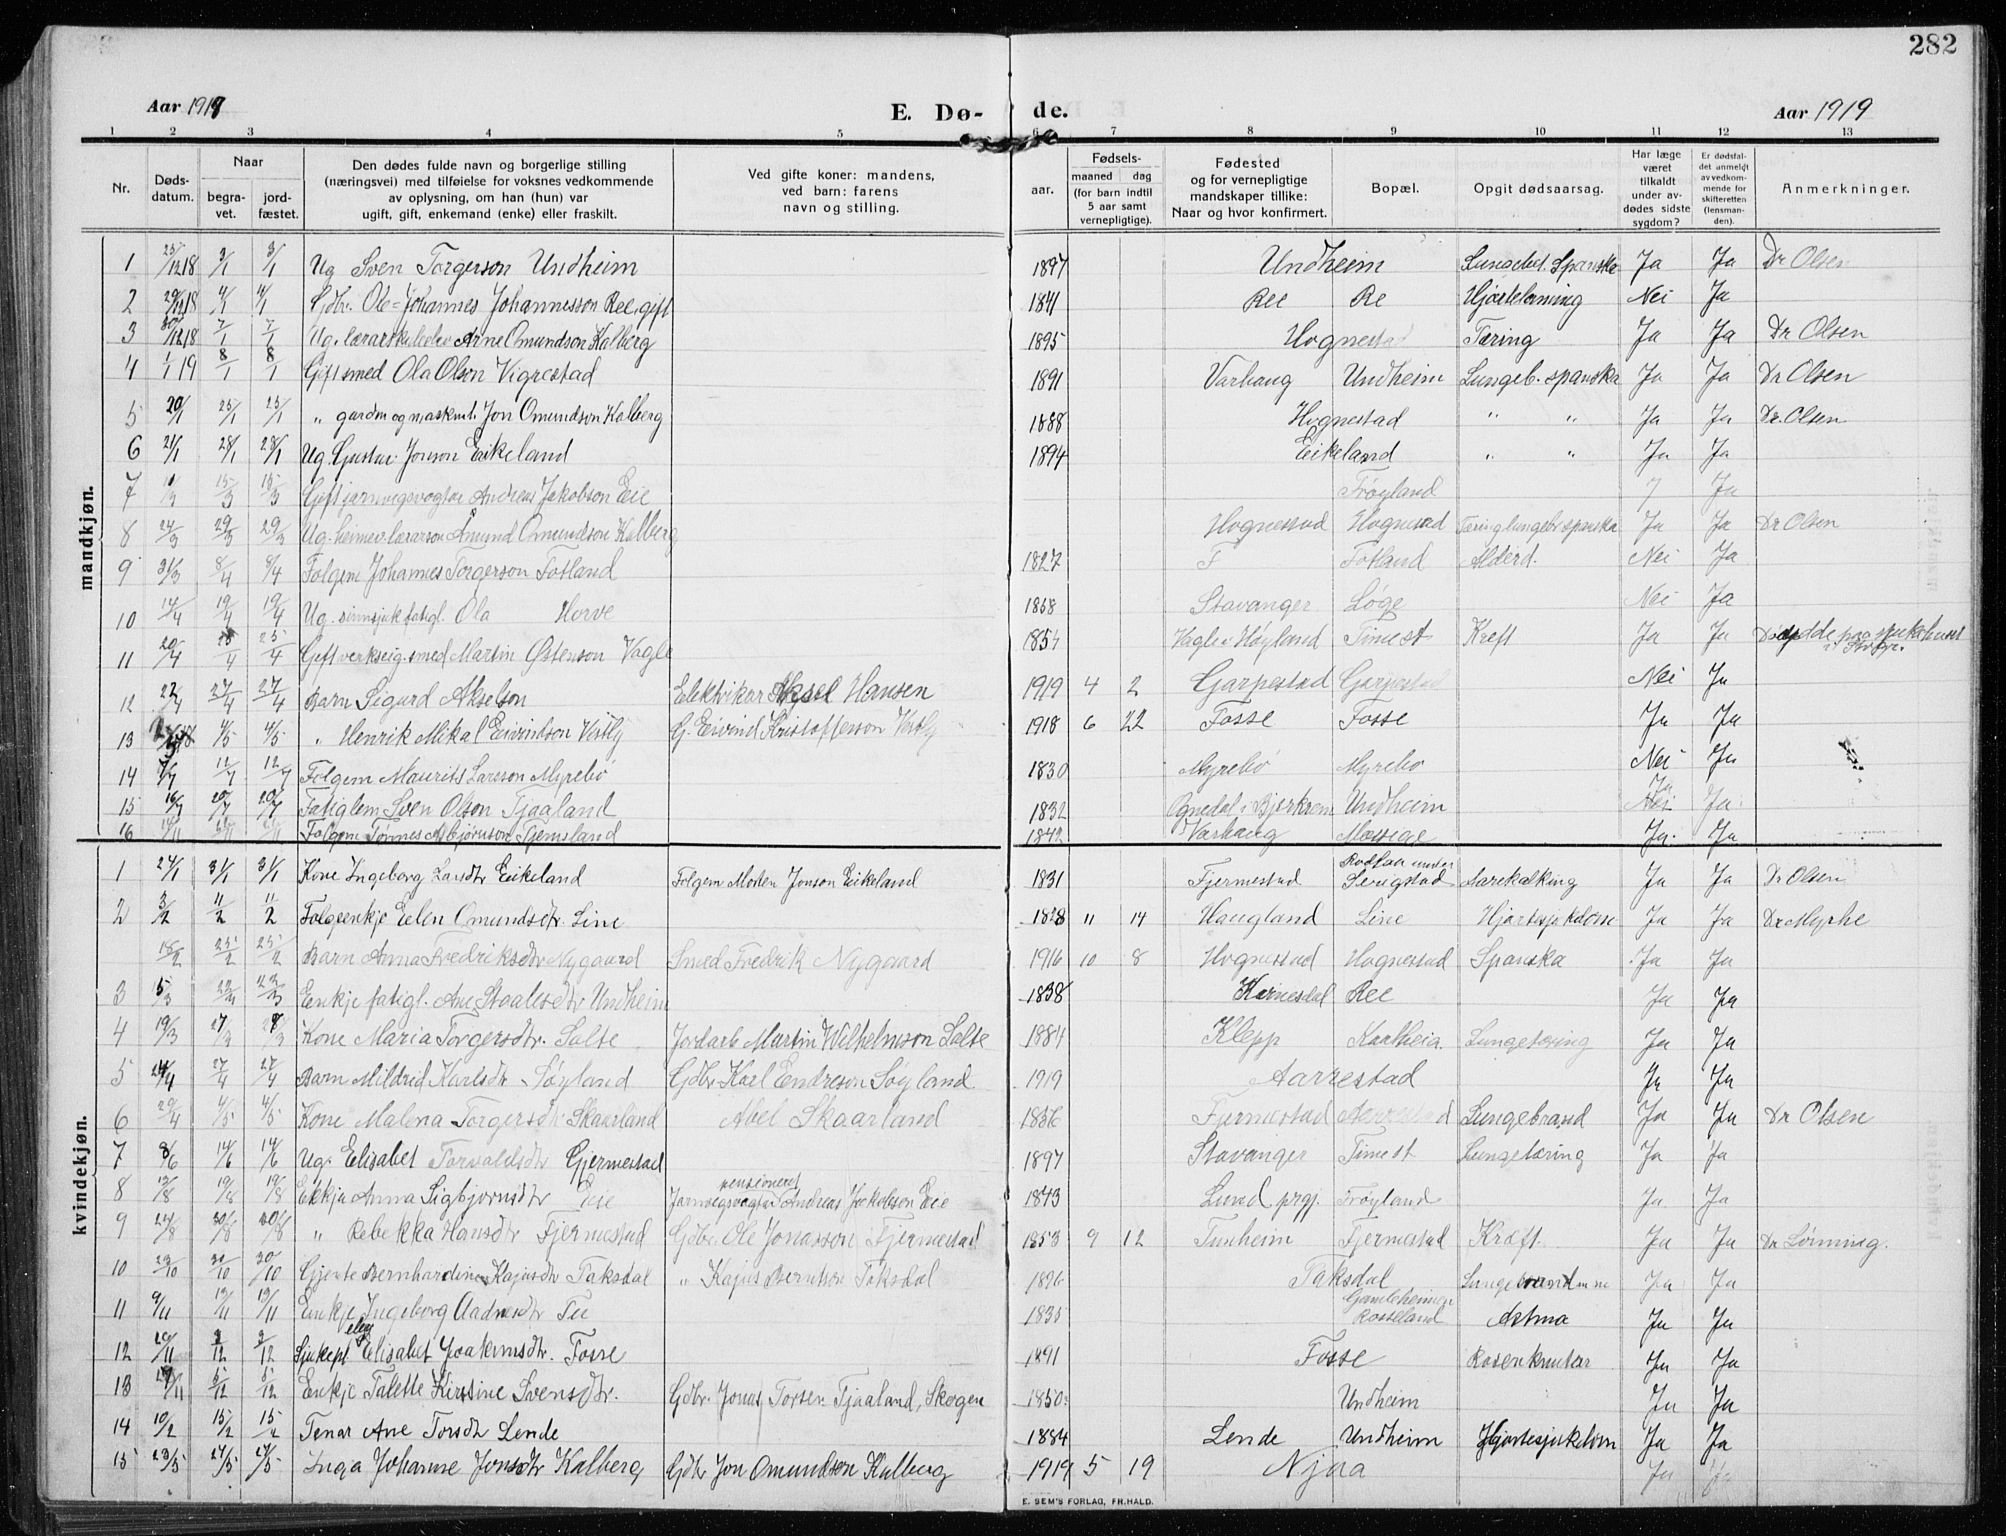 282
Aar 1919 E. Dø- de. Aar 1919
1 2 3 4 5 6 7 8 9 10 11 12 13
Nr. Døds-datum. Naar begra-vet. jord-fæstet. Den dødes fulde navn og borgerlige stilling (næringsvei) med tilføielse for voksnes vedkommende av oplysning, om han (hun) var ugift, gift, enkemand (enke) eller fraskilt. Ved gifte koner: mandens, ved barn: farens navn og stilling. aar. Fødsels- maaned dag (for barn indtil 5 aar samt vernepligtige). Fødested og for vernepligtige mandskaper tillike: Naar og hvor konfirmert. Bopæl. Opgit dødsaarsag. Har læge været tilkaldt under av-dødes sidste sygdom? Er dødsfal-det anmeldt av vedkom-mende for skifteretten (lensman-den). Anmerkninger.
mandkjøn.
1 3/1 3/1 Ug Sven Torgerson Undheim 1897 Undheim Spanska Ja Ja Dr Olsen
2 29/12 18 4/1 4/1 Gdbr. Ole-Johannes Johannesson Ree, gift 1841 Ree Re Hjartelaming Nei Ja
3 30/12 18 7/1 7/1 Ug. Arne Omundson Kalberg 1895 Hognestad Tæring Ja Ja Dr Olsen
4 1/1 19 8/1 8/1 Gift smed Ola Olson Vigrestad 1891 Varhaug Undheim Lungeb. spanska Ja Ja Dr Olsen
5 20/1 25/1 25/1 " gardm og Jon Omundson Kalberg 1888 Hognestad " " Ja Ja Dr. Olsen
6 21/1 28/1 28/1 Ug. Gustav Jonson Eikeland 1894 Eikeland " " Ja Ja
7 15/3 15/3 Gift jarnvegsvogtar Andreas Jakobson Eie Frøyland J Ja
8 24/3 29/3 29/3 Ug. Åmund Omundson Kalberg Hognestad Hognestad Tæring lungebr spanska Ja Ja Dr Olsen
9 31/3 8/4 8/4 Folgem Johannes Torgerson Fotland 1827 F Fotland Alderd. Nei Ja
10 14/4 19/4 19/4 Ug. sinnsjuk fatigl. Ola Herve 1858 Stavanger Løge Nei Ja
11 20/4 25/4 25/4 Gift verkseig. smed Martin Østenson Vagle 1854 Vagle i Høyland Time st Kreft Ja Ja paa sjukehuset
12 22/4 27/4 27/4 Barn Sigurd Akselson Elektrikar Aksel Hansen 1919 4 2 Garpestad Garpestad Nei Ja
13 4/5 4/5 " Henrik Mikal Eivindson Vestly G. Eivind Kristofferson Vestly 1918 6 22 Fosse Fosse Ja Ja
14 7/7 12/7 12/7 Folgem Maurits Larsson Myrebø 1830 Myrebø Myrebø Nei Ja
15 16/7 20/7 20/7 Fatiglem Sven Olson Tjaaland 1832 Ognedal i Bjerkrem Undheim Ja Nei Ja
16 Folgem Tønnes Asbjørnson Tjemsland 1842 Varhaug Mossige Ja. Ja
kvindekjøn.
1 24/1 31/1 31/1 Kone Ingeborg Eikeland Folgem Morten Jonson Eikeland 1831 Fjermestad under Serigstad Aarekalking Ja Ja Dr Olsen
2 3/2 11/2 11/2 Folgeenkje Elen Omundsdtr. Line 1828 11 14 Haugland Line Hjartesjukdom Ja Ja Dr Myhre
18/2 25/2 25/2 Barn Anna Fredriksdtr Nygaard Smed Fredrik Nygaard 1916 10 8 Hognestad Hognestad Spanska Ja Ja
3 5/3 Enkje fatigl. Ane Staalesdtr Undheim 1838 Ree Ja Ja
4 19/3 27/3 Kone Maria Torgersdtr. Salte Jordarb Martin Wilhelmson Salte 1884 Klepp Kaalheia Lungetæring Ja Ja
5 24/4 27/4 27/4 Barn Mildrid Karlsdtr Søyland Gdbr Karl Endreson Søyland 1919 Aarrestad Ja Ja
6 29/4 4/5 4/5 Kone Malena Torgersdtr Skaarland Abel Skaarland 1856 Fjermestad Aarrestad Lungebrand Ja Ja Dr Olsen
7 8/6 14/6 14/6 Ug. Elisabet Torvaldsdtr Gjermestad 1897 Stavanger Time st Lungetæring Ja Ja
8 13/8 19/8 19/8 Enkje Anna Sigbjørnsdtr Eie pensioneret Jarnvegsvogtar Andreas Jakobson Eie 1843 Lund prgj. Frøyland Ja Ja
9 24/8 30/8 30/8 " Rebekka Hansdtr Fjermestad Gdbr. Ole Jonasson Fjermestad 1853 9 12 Tunheim Fjermestad Kræft Ja Ja Dr Lønning.
10 23/10 30/10 30/10 Gjente Bernhardine Kajusdtr Taksdal " Kajus Berntson Taksdal 1896 Taksdal Ja Ja
11 9/11 19/11 19/11 Enkje Ingeborg Aadnesdtr Tu 1835 Gamleheimen Rosseland Astma Ja Ja
12 29/11 2/12 2/12 Sjukepl elev Elisabet Joakimsdtr. Fosse 1891 Fosse Rosenknutar Ja Ja
13 5/12 5/12 Enkje Talette Kirstine Svensdtr. Gdbr. Jonas Torsen Tjaaland, Skogen 1850 Undheim Ja Ja
14 10/2 15/2 15/2 Tenar Ane Torsdtr Lende 1884 Lende Undheim Hjartesjukdom Ja Ja
15 23/5 27/5 27/5 Inga Johanne Jonsdtr Kalberg Gdbr Jon Omundson Kalberg 1919 5 19 Njaa Ja Ja
E. SEM'S FORLAG, FR.HALD.